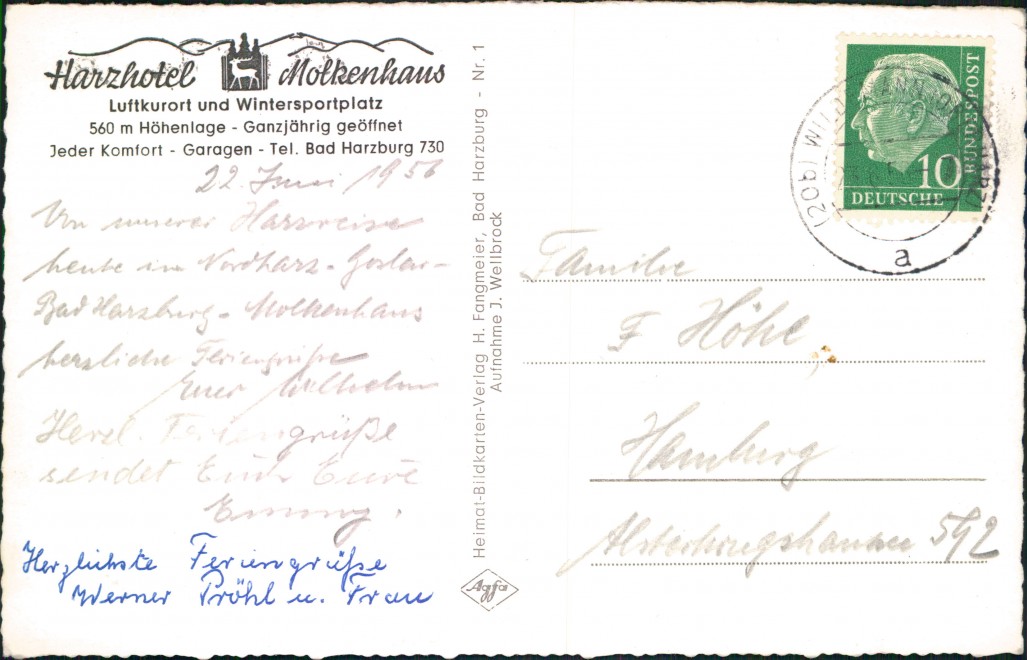 Harzhotel Molkenhaus
Luftkurort und Wintersportplatz
560 m Höhenlage - Ganzjährig geöffnet
Jeder Komfort - Garagen - Tel. Bad Harzburg 730
22. Juni 1956
Von unserer Harzreise
heute im Nordharz - Goslar -
Bad Harzburg - Molkenhaus
herzliche Feriengrüße
Euer Wilhelm
Herzl. Feriengrüße
sendet Euch Eure
Emmy.
Herzlichste Feriengrüße
Werner Pröhl u. Frau
Heimat-Bildkarten-Verlag H. Fangmeier, Bad Harzburg - Nr. 1
Aufnahme J. Wellbrock
Agfa
DEUTSCHE
BUNDESPOST
10
(20b)
a
Familie
F Höhe,
Hamburg
592